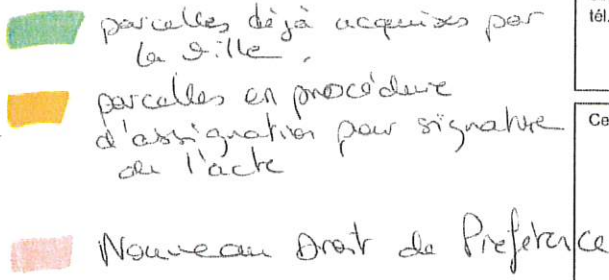 parcelles déjà acquises par
la ville.
parcelles en procédure
d'assignation pour signature
de l'acte
Nouveau Droit de Préférence
tél.
Ce